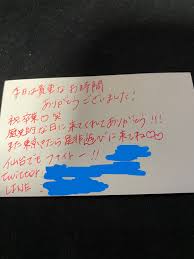 今日は貴重なお時間
ありがとうございました!
祝卒業○笑
歴史的な日に来てくれてありがとう!!!
また東京きたら是非遊びに来てね♡♡
仙台でもファイトー!!
twitter
LINE